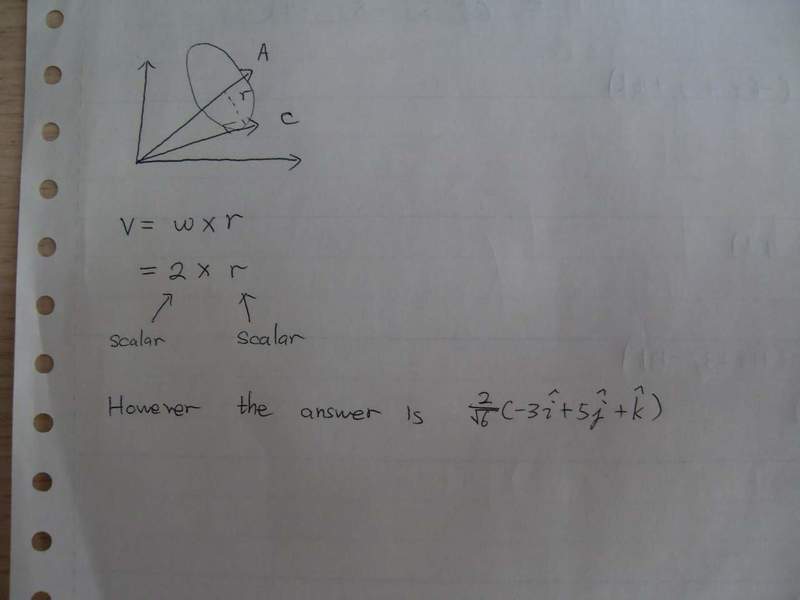 A
r
C
V = w × r
= 2 × r
scalar scalar
However the answer is 2/√6 (-3î + 5ĵ + k̂)